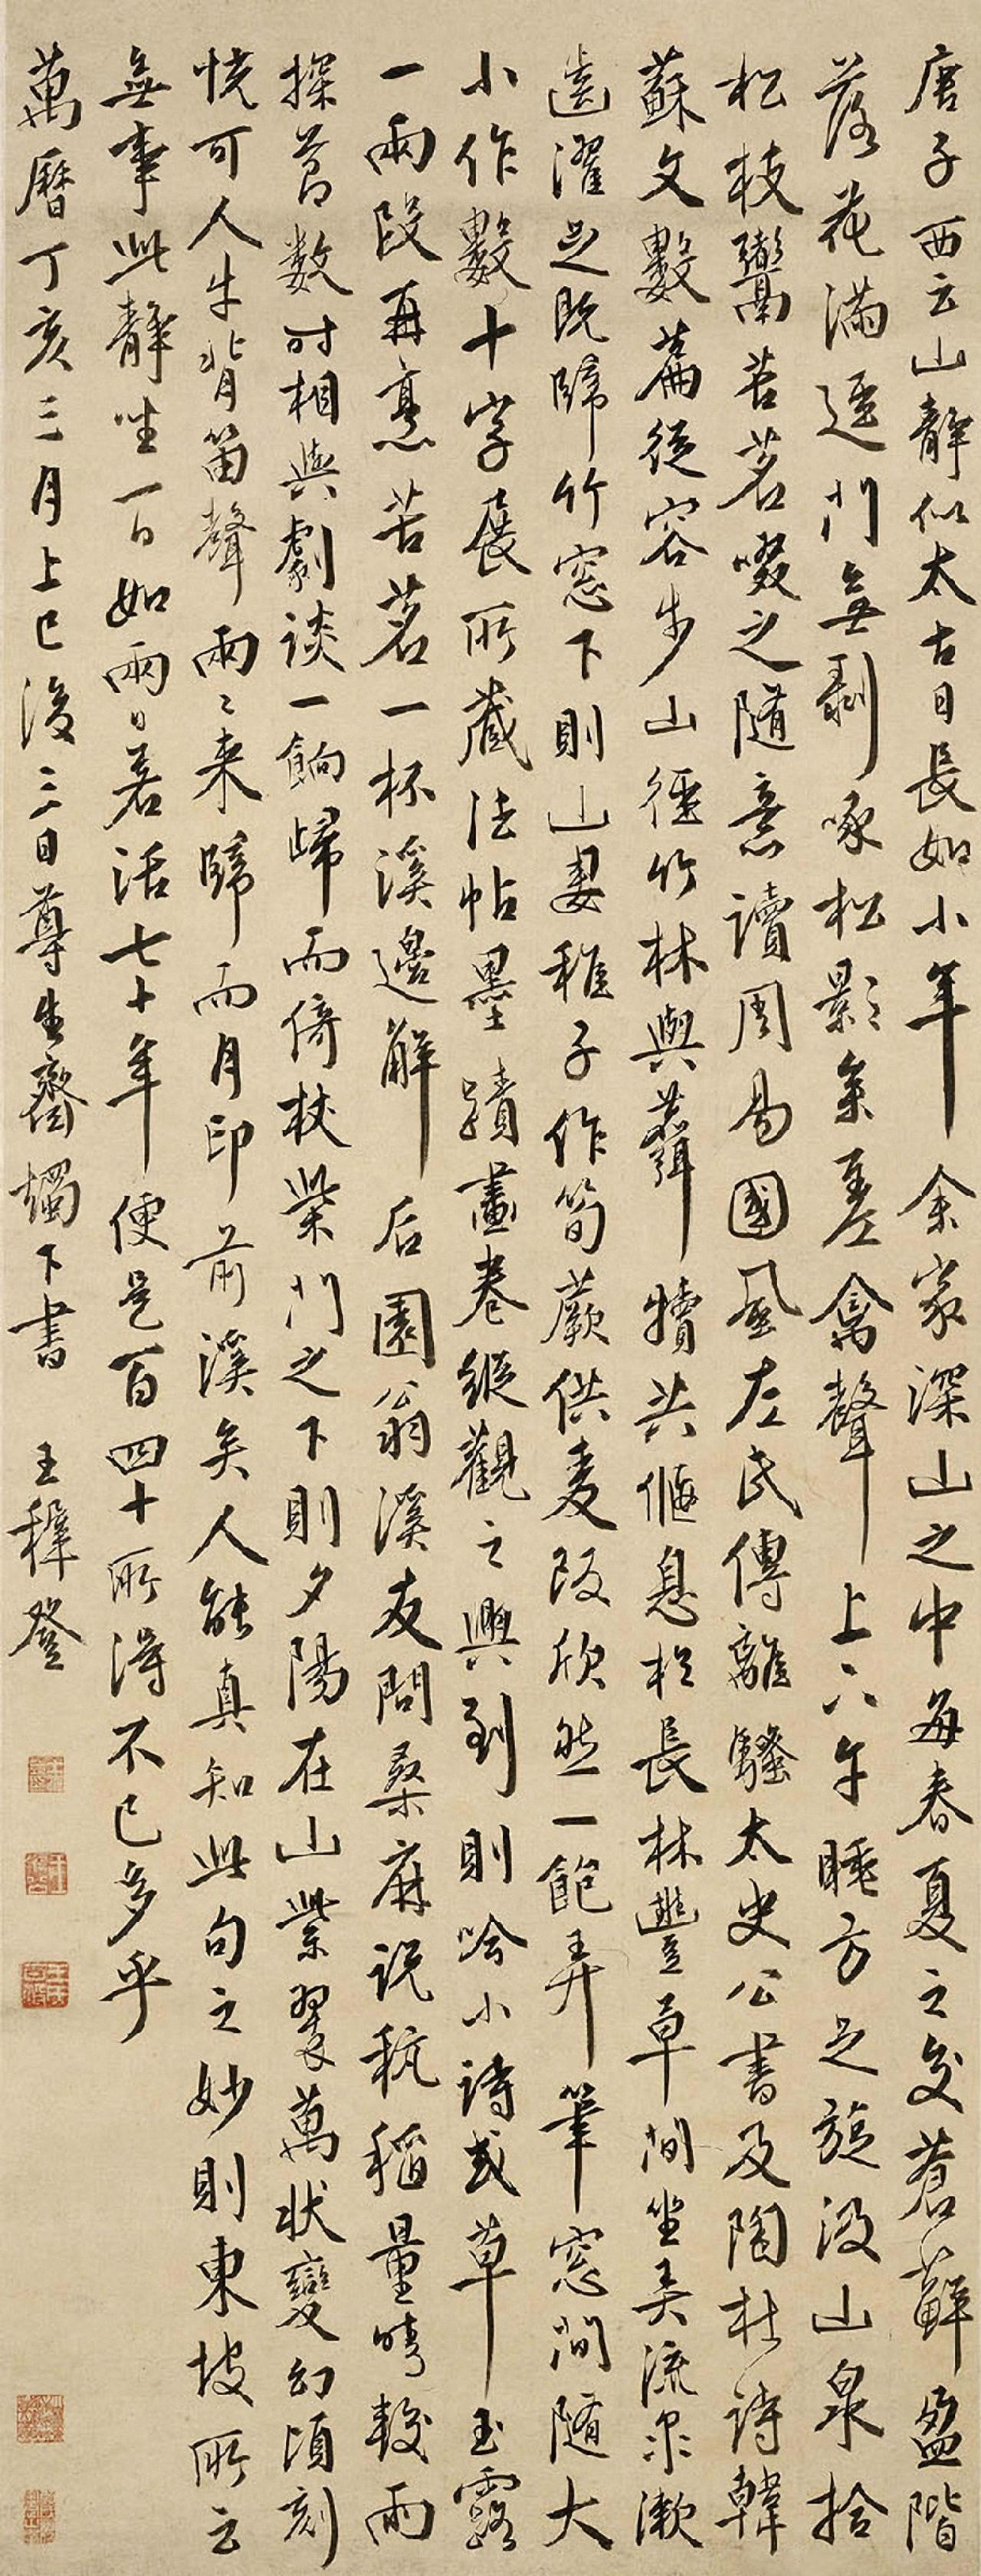 唐子西云山靜似太古日長如小年余家深山之中每春夏之交蒼蘚盈階
落花滿逕門無剝啄松影參差禽聲上下午睡方足旋汲山泉拾
松枝鬻苦茗啜之隨意讀周易國風左氏傳離騷太史公書及陶杜詩韓
蘇文數篇從容步山徑竹林與麛犢共偃息於長林豐草間坐弄流泉漱
齒濯足既歸竹窓下則山妻稚子作筍蕨供麦飯欣然一飽弄筆窓間隨大
小作數十字展所藏法帖墨蹟畫卷縱觀之興到則唫小詩或草玉露
一兩段再烹苦茗一杯溪邊解后園翁溪友問桑麻說秔稻量晴較雨
探節数时相與劇談一餉歸而倚杖柴門之下則夕陽在山紫翠萬狀變幻頃刻
恍可人牛背笛聲兩〻来歸而月印前溪矣人能真知此句之妙則東坡所云
無事此靜坐一日如兩日若活七十年便是百四十所得不已多乎
萬曆丁亥三月上巳後三日尊生齋燭下書 王穉登